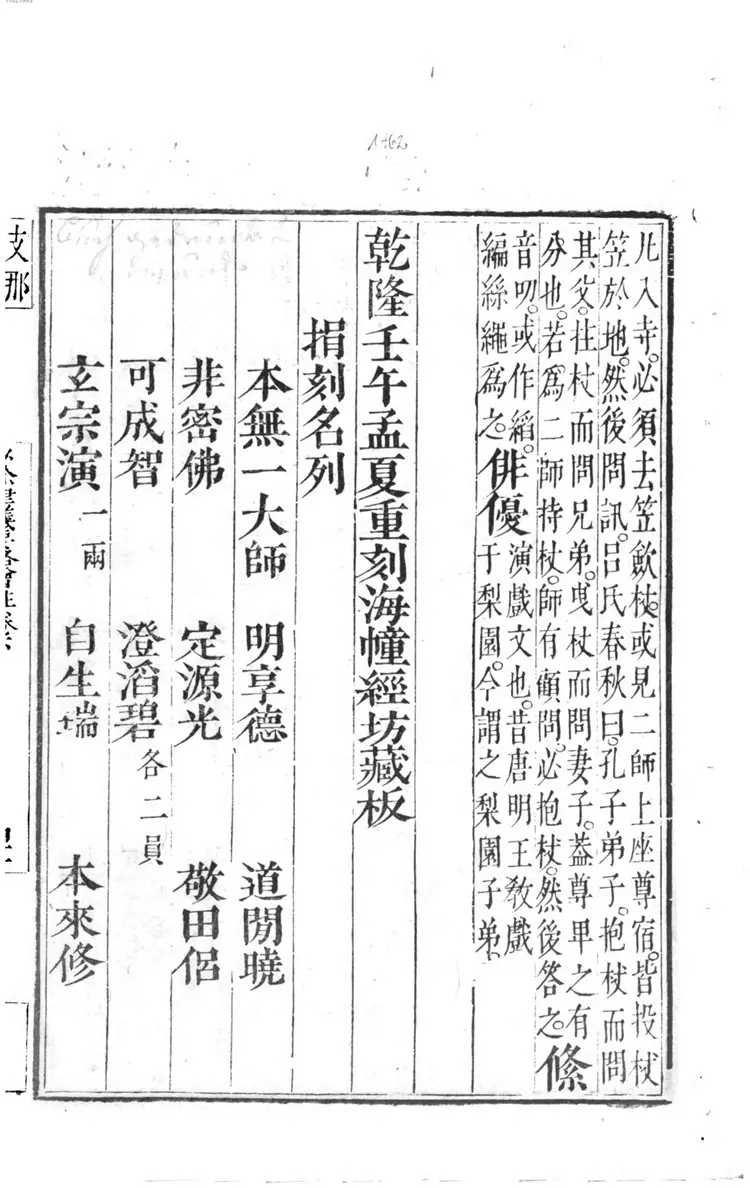 凡入寺。必須去笠歛杖。或見二師上座尊宿。皆投杖
笠於地。然後問訊。呂氏春秋曰。孔子弟子。抱杖而問
其父。拄杖而問兄弟。曳杖而問妻子。葢尊卑之有
分也。若爲二師持杖。師有顧問。必抱杖。然後答之。絛
音叨。或作縚。演戲文也。昔唐明王敎戲
編絲繩爲之。俳優于梨園。今謂之梨園子弟。
乾隆壬午孟夏重刻海幢經坊藏板
捐刻名列
本無一大師 明享德 道閒曉
非密佛 定源光 敬田侶
可成智 澄滔碧 各二員
玄宗演 一兩 自生瑞 本來修
支那
1462